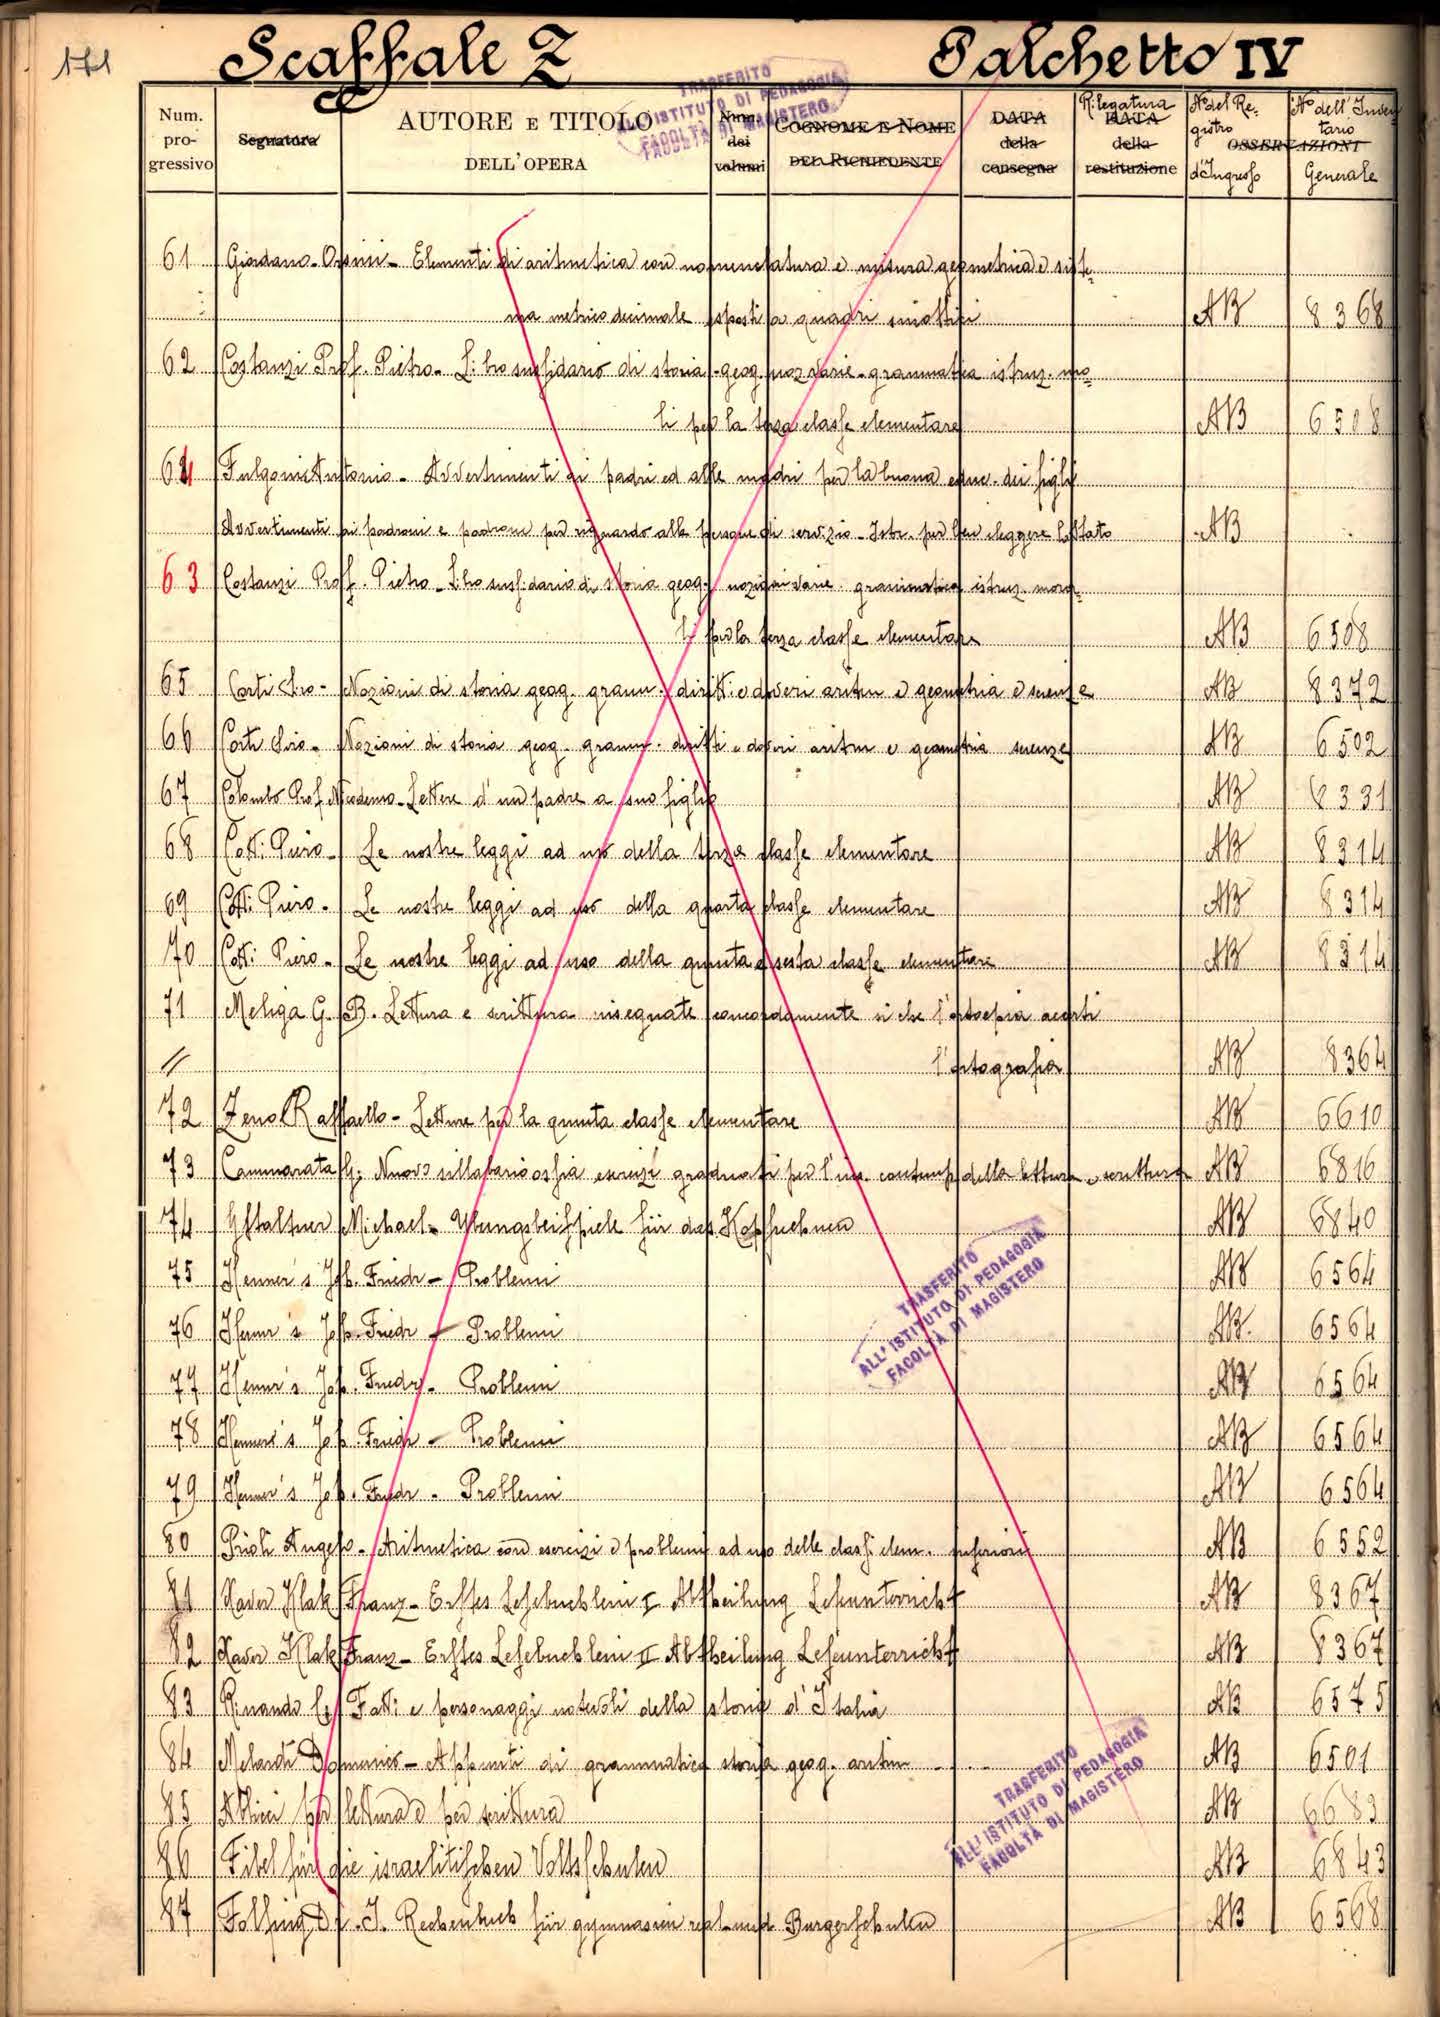 171
Scaffale Z Palchetto IV
Num. progressivo Segnatura AUTORE E TITOLO DELL'OPERA Num. dei volumi COGNOME E NOME DEL RICHIEDENTE DATA della consegna Rilegatura DATA della restituzione OSSERVAZIONI No del Registro d'Ingresso No dell'Inventario Generale
TRASFERITO
ALL'ISTITUTO DI PEDAGOGIA
FACOLTÀ DI MAGISTERO
61 Giordano-Orsini - Elementi di aritmetica con nomenclatura e misura geometrica e siste-
ma metrico decimale esposti a quadri sinottici AB 8368
62 Costanzi Prof. Pietro - Libro sussidario di storia - geog. noz varie - grammatica istruz. mo-
li per la terza classe elementare AB 6508
64 Fulgoni Antonio - Avvertimenti ai padri ed alle madri per la buona educ. dei figli
Avvertimenti ai padroni e padrone per riguardo alle persone di servizio - Istr. per ben eleggere lo stato AB
63 Costanzi Prof. Pietro - Libro sussidario di storia geog. nozioni varie. grammatica istruz. mora-
li per la terza classe elementare AB 6508
65 Corti Siro - Nozioni di storia geog. gramm. diritti e doveri aritm e geometria e scienze AB 8372
66 Corti Siro - Nozioni di storia geog. gramm. diritti e doveri aritm e geometria scienze AB 6502
67 Colombo Prof. Nicodemo - Lettere d'un padre a suo figlio AB 8331
68 Cotti Piero - Le nostre leggi ad uso della terza classe elementare AB 8314
69 Cotti Piero - Le nostre leggi ad uso della quarta classe elementare AB 8314
70 Cotti Piero - Le nostre leggi ad uso della quinta e sesta classe elementare AB 8314
71 Meliga G. B. Lettura e scrittura insegnate concordamente si che l'ortoepia accerti
// l'ortografia AB 8364
72 Zeno Raffaello - Letture per la quinta classe elementare AB 6610
73 Cammarata G; Nuovo sillabario ossia esercizi graduati per l'ins. contemp della lettura e scrittura AB 6816
74 Gstaltner Michael - Übungsbeispiele für das Kopfrechnen AB 6840
75 Henner's Joh. Friedr - Problemi AB 6564
76 Henner's Joh. Friedr - Problemi AB. 6564
77 Henner's Joh. Friedr - Problemi AB 6564
78 Henner's Joh. Friedr - Problemi AB 6564
79 Henner's Joh. Friedr - Problemi AB 6564
TRASFERITO
ALL'ISTITUTO DI PEDAGOGIA
FACOLTÀ DI MAGISTERO
80 Prioli Angelo - Aritmetica con esercizi e problemi ad uso delle classi elem. inferiori AB 6552
81 Xaver Klak Franz - Erstes Lesebuchlein I Abtheilung Leseunterricht AB 8367
82 Xaver Klak Franz - Erstes Lesebuchlein II Abtheilung Leseunterricht AB 8367
83 Rinaudo C. Fatti e personaggi notevoli della storia d'Italia AB 6575
84 Melardi Domenico - Appunti di grammatica storia geog. aritm AB 6501
85 Abbicci per lettura e per scrittura AB 6683
86 Fibel für die israelitischen Volksschulen AB 6843
87 Folsing Dr. J. Rechenbuch für gymnasien real- und Burgerschulen AB 6568
TRASFERITO
ALL'ISTITUTO DI PEDAGOGIA
FACOLTÀ DI MAGISTERO